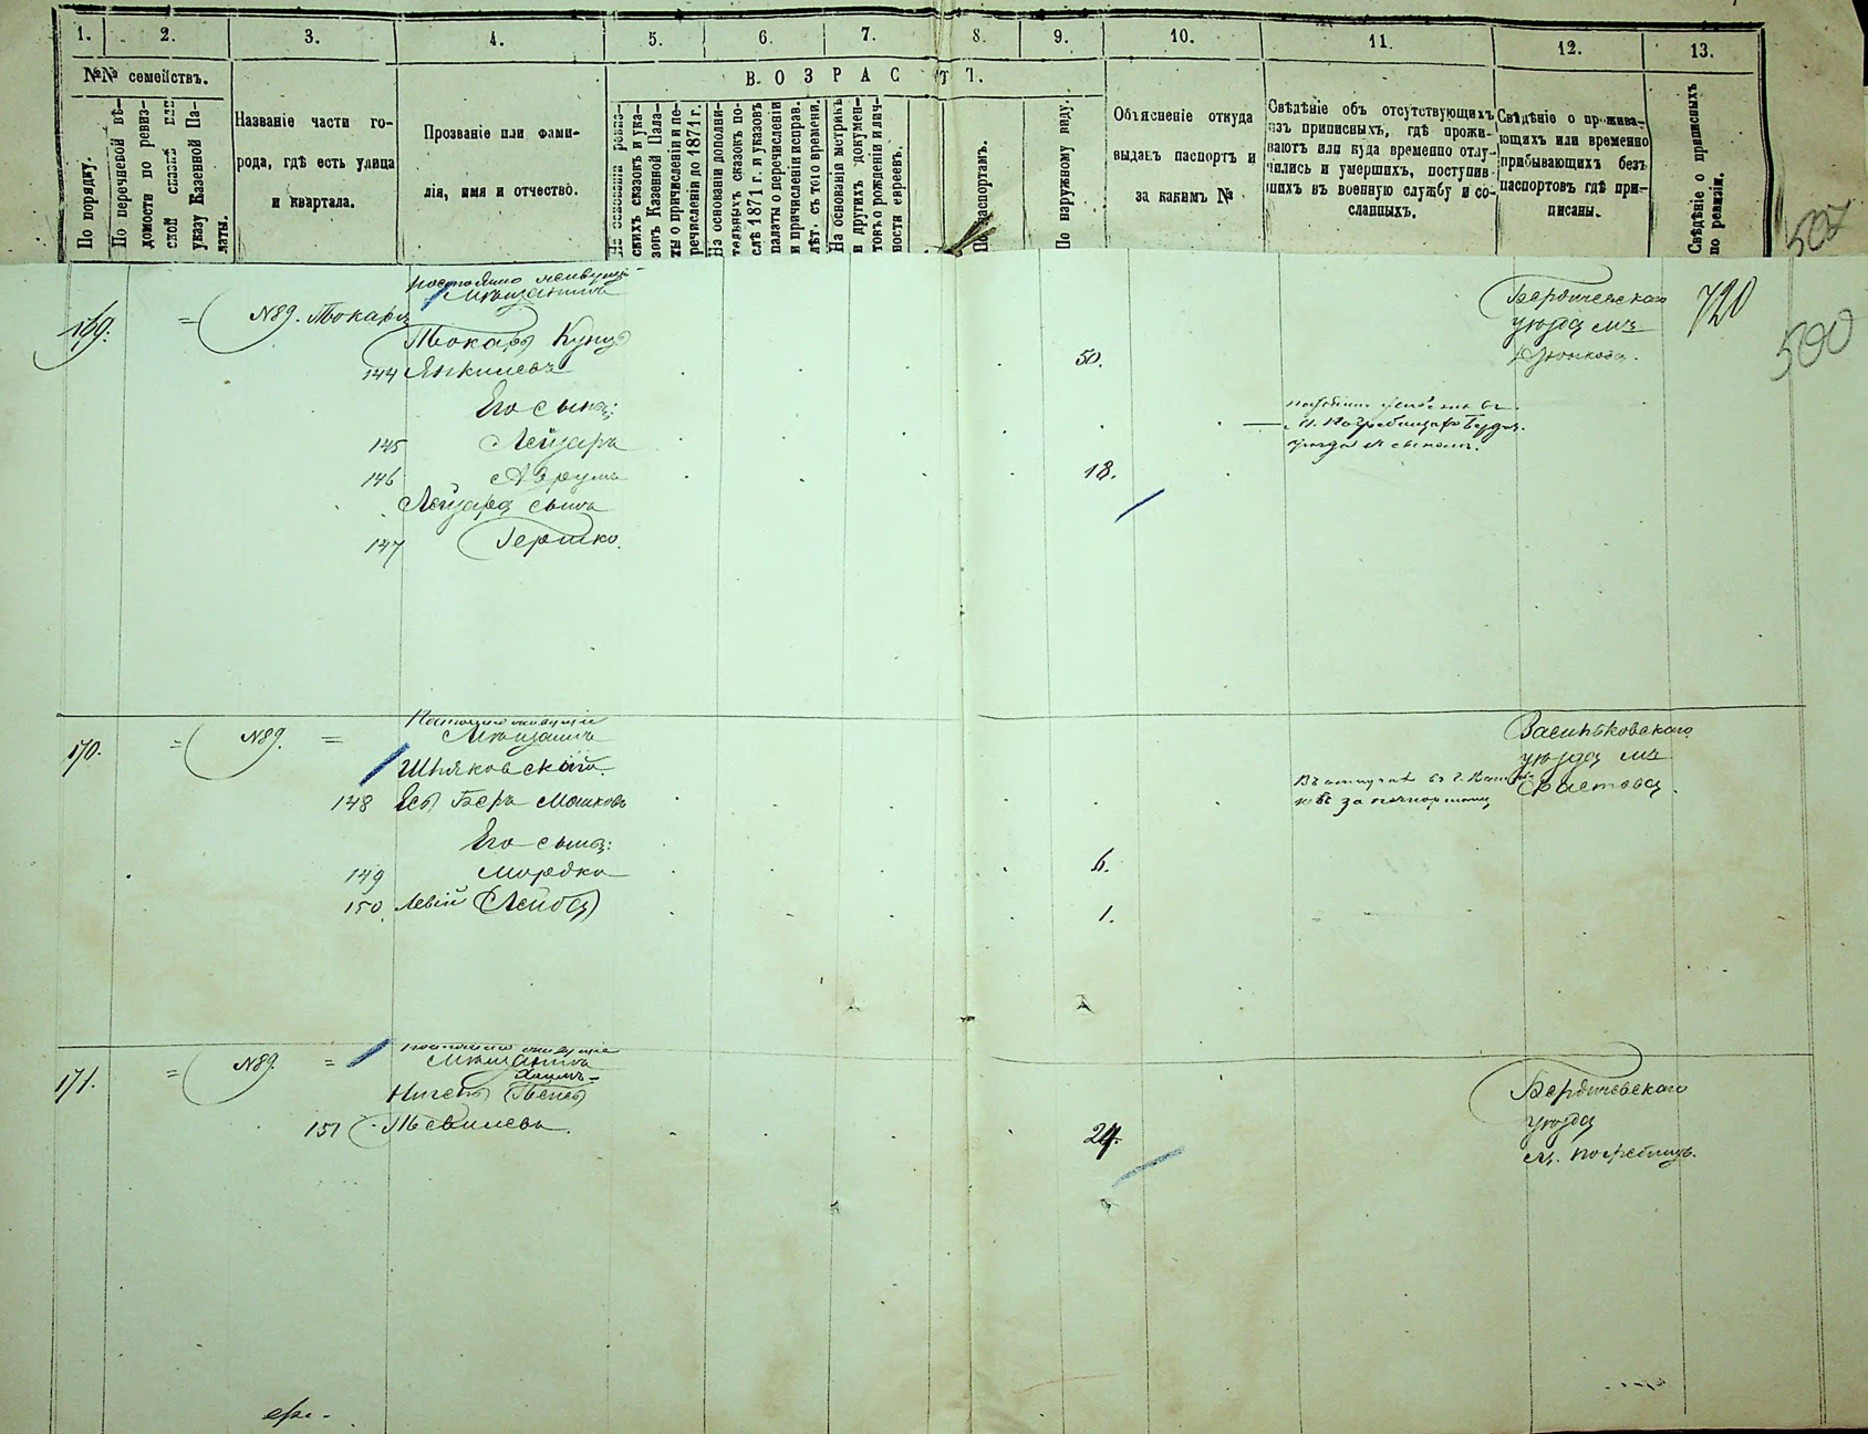 1. 2. 3. 4. 5. 6. 7. 8. 9. 10. 11. 12. 13.
№№ семействъ.
По порядку.
По перечневой вѣ-
домости по ревиз-
ской сказкѣ или
указу Казенной Па-
латы.
Названіе части го-
рода, гдѣ есть улица
и квартала.
Прозваніе или фами-
лія, имя и отчество.
ВОЗРАСТЪ.
На основаніи ревиз-
скихъ сказокъ и ука-
зовъ Казенной Пала-
ты о причисленіи и пе-
речисленіи до 1871 г.
На основаніи дополни-
тельныхъ сказокъ по-
слѣ 1871 г. и указовъ
палаты о перечисленіи
и причисленіи исправ.
лѣт. съ того времени.
На основаніи метрикъ
и другихъ докумен-
товъ о рожденіи и лич-
ности евреевъ.
По паспортамъ.
По наружному виду.
Объясненіе откуда
выданъ паспортъ и
за какимъ №
Свѣдѣніе объ отсутствующихъ
изъ приписныхъ, гдѣ прожи-
ваютъ или куда временно отлу-
чились и умершихъ, поступив-
шихъ въ военную службу и со-
сланныхъ.
Свѣдѣніе о прожива-
ющихъ или временно
прибывающихъ безъ
паспортовъ гдѣ при-
писаны.
Свѣдѣніе о приписныхъ
по ревизіи.
507
500
720
169. = N89. Токарь
постоянно живущі-
Мѣщанинъ
Токарь Куна
144 Янкилевъ 50.
Бердичевскаго
уѣзда мъ
Его сынъ:
145 Лейзаръ
146 Аврумъ 18.
Лейзара сынъ
147 Гершко.
170. = N89. =
Постоянно живущіе
Мѣщанинъ
Шняковскій.
148 Есь Беръ Мошковъ
за
Васильковскаго
уѣзда мъ
Фастова.
Его сынъ:
149 Мордко 6.
150. Левій (Лейба) 1.
171. = N89. =
постоянно живущіе
Мѣщанинъ
Хаимъ-
151 Тевилевъ. 24.
Бердичевскаго
уѣзда
м. Погребищъ.